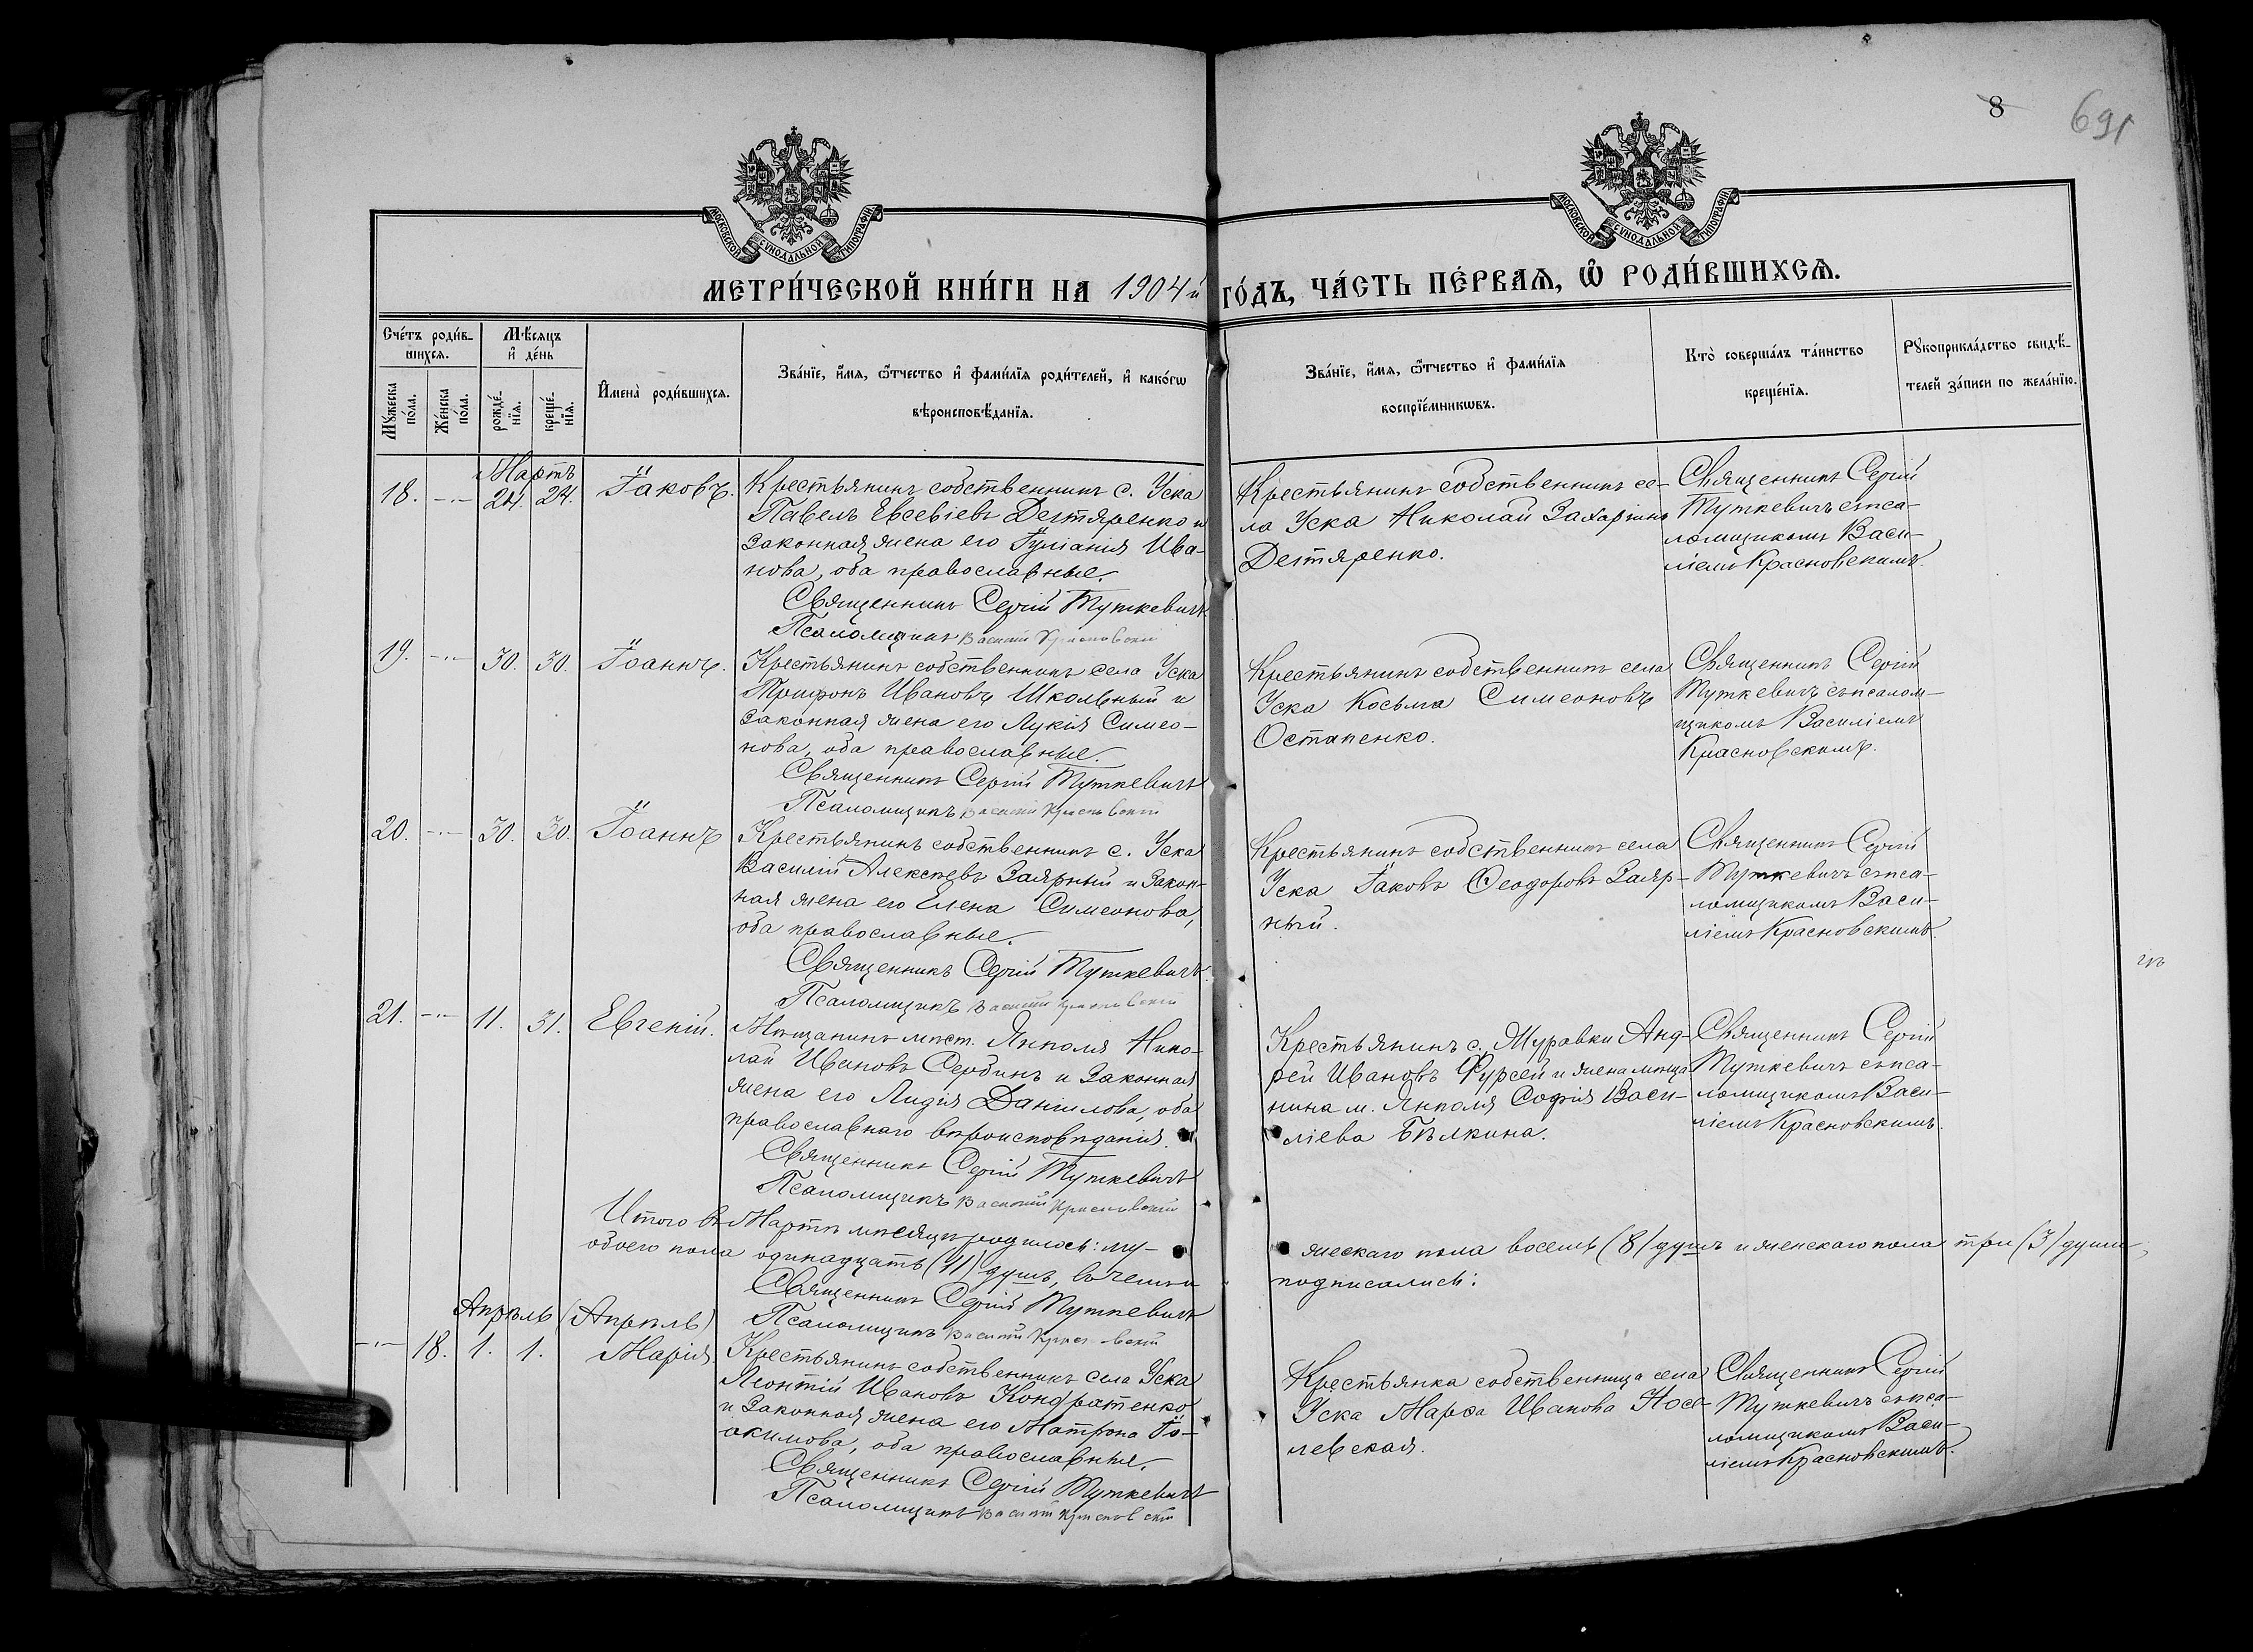 8
691
МОСКОВСКОЙ СѴНОДАЛЬНОЙ ТИПОГРАФІИ.
МОСКОВСКОЙ СѴНОДАЛЬНОЙ ТИПОГРАФІИ.
МЕТРИ́ЧЕСКОЙ КНИ́ГИ НА 1904й ГО́ДЪ, ЧА́СТЬ ПЕ́РВАѦ, Ѡ҆ РОДИ́ВШИХСѦ.
Сче́тъ роди́в-
шихсѧ.
Мѣ́сѧцъ
и҆ де́нь
Мꙋжеска
по́ла.
Же́нска
по́ла.
рожде́-
нїѧ.
креще́-
нїѧ.
И҆мена̀ роди́вшихсѧ.
Зва́нїе, и҆́мѧ, ѻ҆́тчество и҆ фами́лїѧ роди́телей, и҆ како́гѡ
вѣроисповѣ́данїѧ.
Зва́нїе, и҆́мѧ, ѻ҆́тчество и҆ фами́лїѧ
воспрїе́мникѡвъ.
Кто̀ соверша́лъ та́инство
креще́нїѧ.
Рꙋкоприкла́дство свидѣ́-
телей за́писи по жела́нїю.
Мартъ
18. -"- 24. 24. Іаковъ.
Крестьянинъ собственникъ с. Уска
Павелъ Евсевіевъ Дегтяренко и
законная жена его Іуліанія Ива-
нова, оба православные.
Священникъ Сергій Туткевичъ
Псаломщикъ Василій Красновскій
Крестьянинъ собственникъ се-
ла Уска Николай Захаріинъ
Дегтяренко.
Священникъ Сергій
Туткевичъ съ пса-
ломщикомъ Васи-
ліемъ Красновскимъ.
19. -"- 30. 30. Іоаннъ.
Крестьянинъ собственникъ села Уска
Трифонъ Ивановъ Школьный и
законная жена его Лукія Симео-
нова, оба православные.
Священникъ Сергій Туткевичъ
Псаломщикъ Василій Красновскій
Крестьянинъ собственникъ села
Уска Косьма Симеоновъ
Остапенко.
Священникъ Сергій
Туткевичъ съ псалом-
щикомъ Василіемъ
Красновскимъ.
20. -"- 30. 30. Іоаннъ
Крестьянинъ собственникъ с. Уска
Василій Алексѣевъ Заярный и закон-
ная жена его Елена Симеонова,
оба православные.
Священникъ Сергій Туткевичъ.
Псаломщикъ Василій Красновскій
Крестьянинъ собственникъ села
Уска Іаковъ Ѳеодоровъ Заяр-
ный.
Священникъ Сергій
Туткевичъ съ пса-
ломщикомъ Васи-
ліемъ Красновскимъ.
21. -"- 11. 31. Евгеній.
Мѣщанинъ мѣст. Янполя Нико-
лай Ивановъ Сербинъ и законная
жена его Лидія Даніилова, оба
православнаго вѣроисповѣданія.
Священникъ Сергій Туткевичъ
Псаломщикъ Василій Красновскій
Крестьянинъ с. Журавки Анд-
рей Ивановъ Фурсей и жена мѣща
нина м. Янполя Софія Васи-
ліева Бѣлкина.
Священникъ Сергій
Туткевичъ съ пса-
ломщикомъ Васи-
ліемъ Красновскимъ.
Итого въ Мартѣ мѣсяцѣ родилось: му-
жескаго пола восемь (8) душъ и женскаго пола три (3) души,
обоего пола одинадцать (11) душъ, въ чемъ и
подписались:
Священникъ Сергій Туткевичъ
Псаломщикъ Василій Красновскій
Апрѣль (Апрѣль)
-"- 18. 1. 1. Марія.
Крестьянинъ собственникъ села Уска
Леонтій Ивановъ Кондратенко
и законная жена его Матрона Іо-
акимова, оба православные.
Священникъ Сергій Туткевичъ
Псаломщикъ Василій Красновскій
Крестьянка собственница села
Уска Марѳа Иванова
левская.
Священникъ Сергій
Туткевичъ съ пса-
ломщикомъ Васи-
ліемъ Красновскимъ.